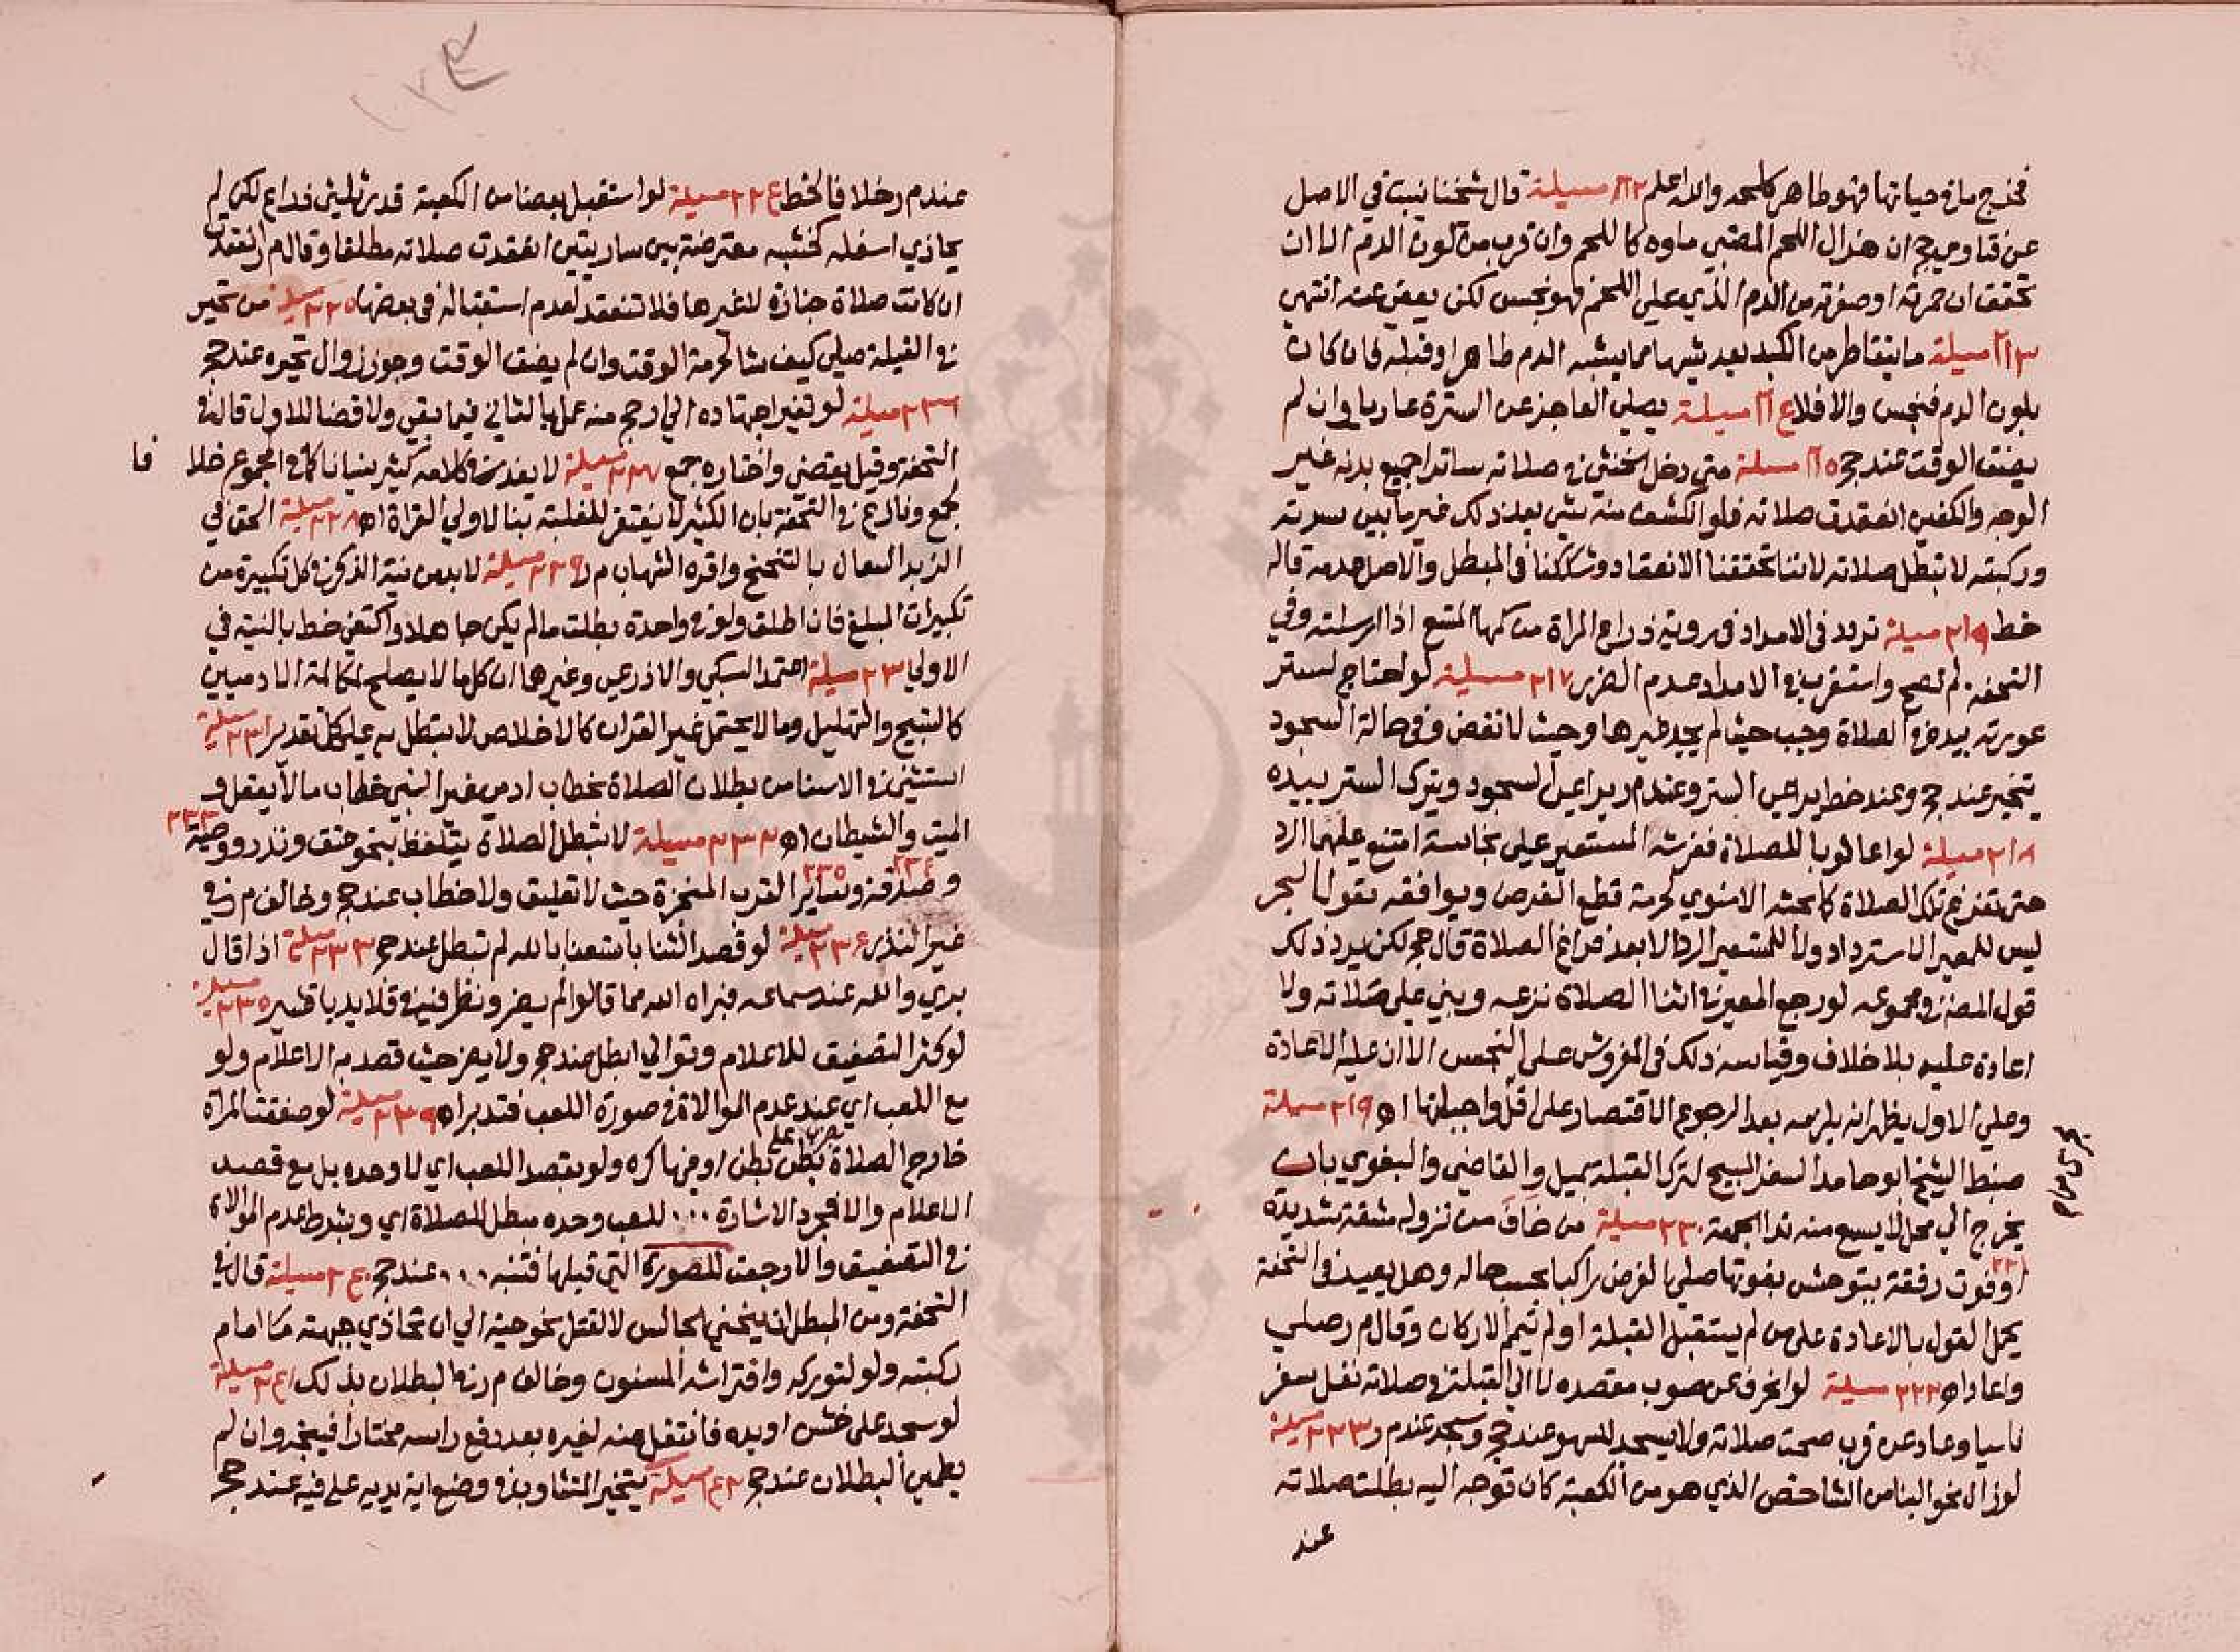 فخرج ماؤ حياتها فهو طاهر كلحمه والله اعلم ٢١٢ مسيلة قال شيخنا نبت في الاصل
عن فتاوي حج ان هذا ال اللحم المصتبي ماوه كاللحم وان قرب من لون الدم الا ان
تحقق ان حمرته او صفرته من الدم الذي علي اللحم فهو نجس لكن يعفي عنه انتهي
٢١٣ مسيلة ما يتقاطر من الكبد بعد شيها مما يشبه الدم طاهر او قبله فان كان
بلون الدم فنجس والا فلا ٢١٤ مسيلة يصلي العاجز عن السترة عاريا وان لم
يضق الوقت عند حج ٢١٥ مسيلة متي دخل الخنثي في صلاته ساترا جميع بدنه غير
الوجه والكفين انعقدت صلاته فلو انكشف منه شي بعد ذلك غير ما بين سرته
وركبته لا تبطل صلاته لاننا تحققنا الانعقاد وشككنا في المبطل والاصل عدمه قاله
خط ٢١٦ مسيلة تردد في الامداد في روية ذراع المراة من كمها المتسع اذا ارسلته وفي
التحفة لم تصح واستقرب في الامداد عدم الضرر ٢١٧ مسيلة لو احتاج لستر
عورته بيده في الصلاة وجب حيث لم يجد غيرها وحيث لا نقض وفي حالة السجود
يتخير عند حج وعند خط يراعي الستر وعند م ر يراعي السجود ويترك الستر بيده
٢١٨ مسيلة لو اعار ثوبا للصلاة ففرشه المستعير علي نجاسة امتنع عليهما الرد
حتي تفرغ تلك الصلاة كما بحثه الاسنوي لحرمة قطع الفرض ويوافقه قول البحر
ليس للمعير الاسترداد ولا للمستعير الرد الا بعد فراغ الصلاة قال حج لكن يرد ذلك
قول المصنف في مجموعه لو رجع المعير في اثنا الصلاة نزعه وبني علي صلاته ولا
اعادة عليه بلا خلاف وقياسه ذلك في المفروش علي النجس الا ان عليه الاعادة
وعلي الاول يظهر انه يلزمه بعد الرجوع الاقتصار علي اقل واجباتها اه ٢١٩ مسيلة
ضبط الشيخ ابو حامد السفر المبيح لترك القبلة بميل والقاضي والبغوي بان
يخرج الي محل لا يسمع منه ندا الجمعة ٢٢٠ مسيلة من خاف من نزوله مشقة شديدة
او فوت رفقة يتوحش بفوتها صلي الفرض راكبا بحسب حاله وهل يعيد في التحفة
يحمل القول بالاعادة علي من لم يستقبل القبلة او لم يتم الاركان وقال م ر صلي
واعاد اه ٢٢٢ مسيلة لو انحرف عن صوب مقصده لا الي القبلة في صلاته نفل سفر
ناسيا وعاد عن قرب صحت صلاته ولا يسجد للسهو عند حج وسجد عند م ر ٢٢٣ مسيلة
لو زال نحو البناء الشاخص الذي هو من الكعبة كان توجه اليه بطلت صلاته
عند
عند م ر خلافا لخط ٢٢٤ مسيلة لو استقبل بعضا من الكعبة قدر ثلثي ذراع لكن لم
يحاذي اسفله كخشبه معترضة بين ساريتين انعقدت صلاته مطلقا وقال م ر انعقدت
ان كانت صلاة جنازة لا غيرها فلا تنعقد لعدم استقباله في بعضها ٢٢٥ مسيلة من تحير
في القبلة صلي كيف شا لحرمة الوقت وان لم يضق الوقت وجوز زوال تحيره عند حج
٢٢٦ مسيلة لو تغير اجتهاده الي ارجح منه عمل بالثاني فيما بقي ولا قضا للاول قاله في
التحفة وقيل يقضي واختاره جمع ٢٢٧ مسيلة لا يعذر في كلامه كثير نسيانا كما في المجموع خلا فا
لجمع ونازع في التحفة بان الكثير لا يغتفر للغلبة بنا لاولي القراة اه ٢٢٨ مسيلة الحق في
الزبد السعال بالتنحنح واقره الشهاب م ر ٢٢٩ مسيلة لا بد من نية الذكر في كل تكبيرة من
تكبيرات المبلغ فان اطلق ولو في واحدة بطلت ما لم يكن جاهلا واكتفي خط بالنية في
الاولي ٢٣٠ مسيلة اعتمد السبكي والاذرعي وغيرها ان كل ما لا يصلح لمكالمة الادميين
كالتسبيح والتهليل وما لا يحتمل غير القران كالاخلاص لا تبطل به علي كل تقدير ٢٣١ مسيلة
استثني في الاسنا من بطلان الصلاة بخطاب ادمي غير النبي خطاب ما لا يعقل و
الميت والشيطان اه ٢٣٢ مسيلة لا تبطل الصلاة بتلفظ بنحو عتق ونذر ووصية ٢٣٣
و صدقة وساير القرب المنجزة حيث لا تعليق ولا خطاب عند حج وخالف م ر في
غير النذر ٢٣٤ مسيلة لو قصد الثنا باستعنا بالله لم تبطل عند حج ٢٣٣ مسيلة اذا قال
بري والله عند سماعه فبراه الله مما قالوا لم يضر ونظر فيه في قلايد باقشير ٢٣٥ مسيلة
لو كثر التصفيق للاعلام وتوالي ابطل عند حج ولا يضر حيث قصد به الاعلام ولو
مع اللعب اي عند عدم الموالاة في صورة اللعب فتدبر اه ٢٣٩ مسيلة لو صفقت المراة
خارج الصلاة بضرب بطن علي بطن او غيرها كره ولو بقصد اللعب اي لا وحده بل مع قصد
الاعلام والا فمجرد الاشارة ... للعب وحده مبطل للصلاة اي ويشترط عدم الموالاة
في التصفيق والا رجعت للصورة التي قبلها فتنبه ... عند حج ٢٤٠ مسيلة قال في
التحفة ومن المبطل ان ينحني الجالس لا لقتل نحو حية الي ان تحاذي جبهته ما امام
ركبته ولو لتوركه وافتراشه المسنون وخالف م ر في البطلان بذلك ٢٤١ مسيلة
لو سجد علي خشن او يده فانتقل عنه لغيره بعد رفع راسه مختارا فيتجه وان لم
يطمين البطلان عند حج ٢٤٢ مسيلة يتخير المتثاوب في وضع اية يديه علي فيه عند حج